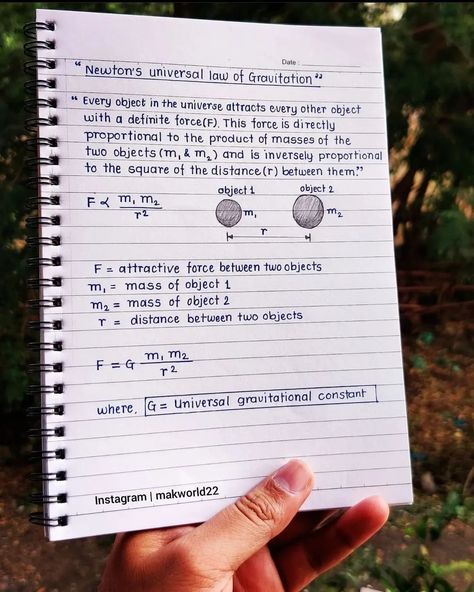 Date :
“ Newton's universal law of Gravitation ”
“ Every object in the universe attracts every other object
with a definite force(F). This force is directly
proportional to the product of masses of the
two objects (m₁ & m₂) and is inversely proportional
to the square of the distance (r) between them.”
object 1 object 2
F ∝ m₁ m₂ / r²
m₁ m₂
r
F = attractive force between two objects
m₁ = mass of object 1
m₂ = mass of object 2
r = distance between two objects
F = G m₁ m₂ / r²
where, G = Universal gravitational constant
Instagram | makworld22